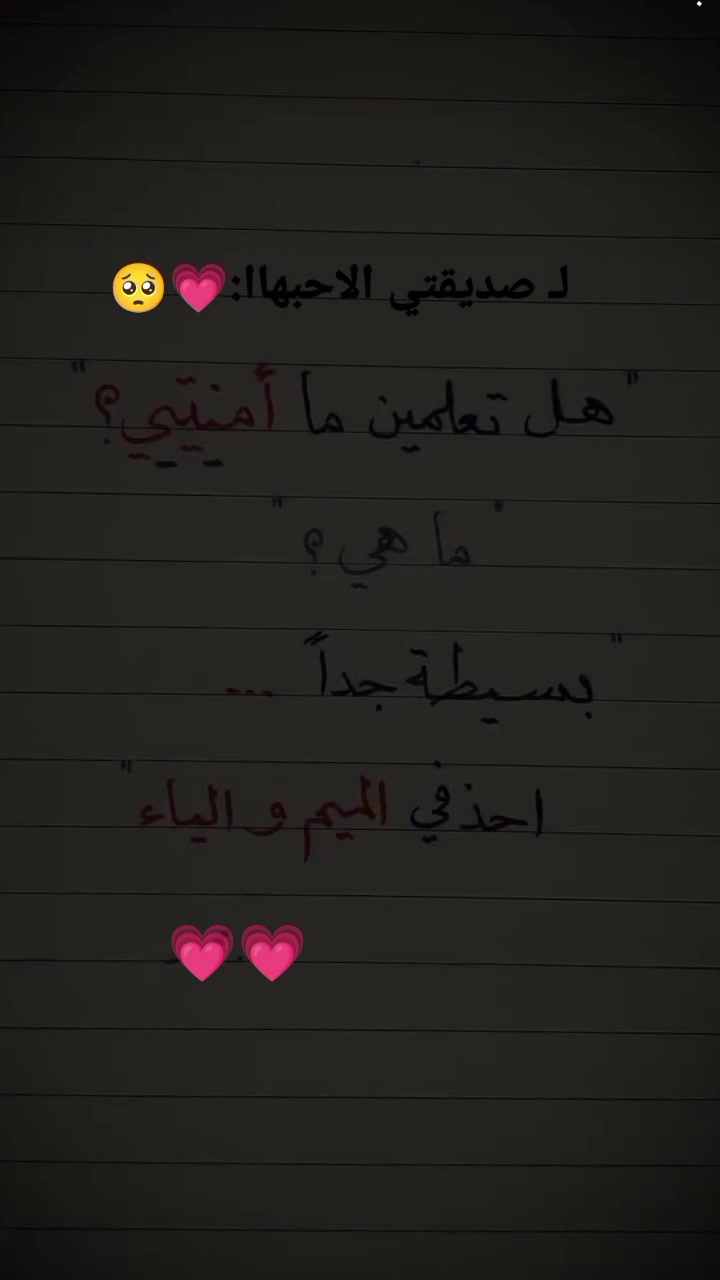 لـ صديقتي الاحبهاا:💗🥺
"هل تعلمين ما أمنيتي؟"
"ما هي؟"
"بسيطة جداً ...
احذفي الميم و الياء"
💗💗